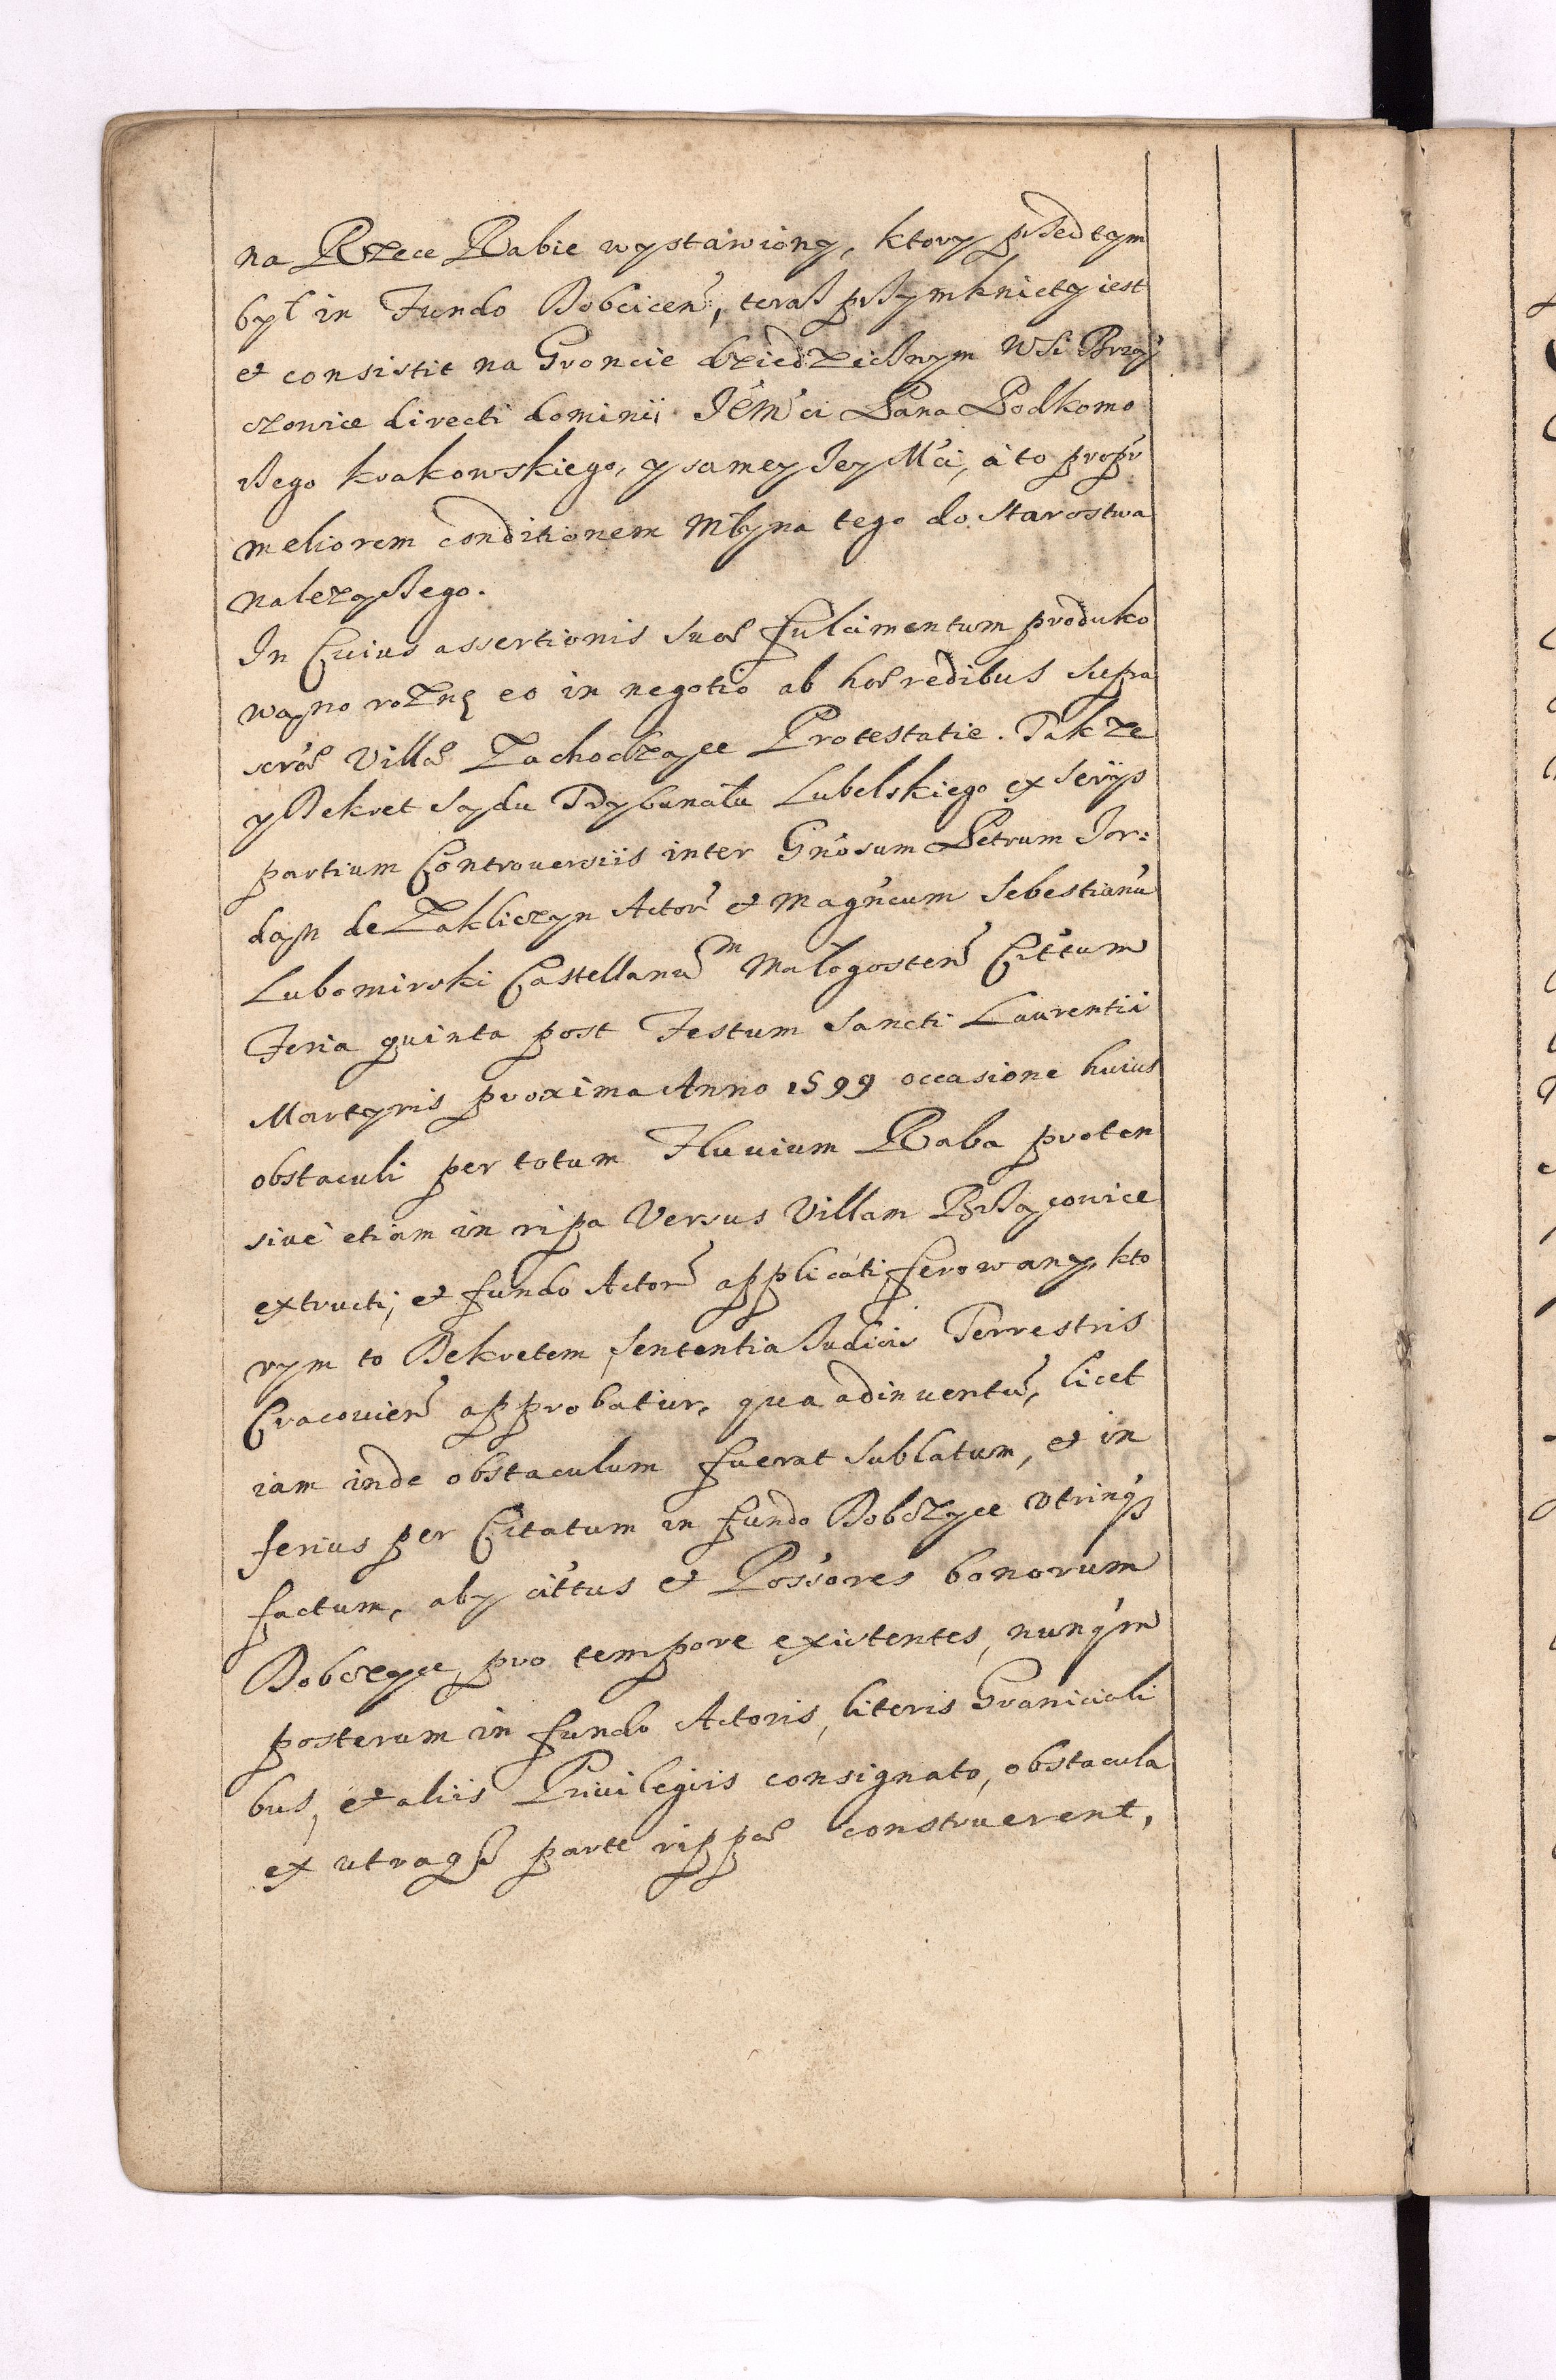 na Rzece Rabie wystawiony, ktory przedtym
był in Fundo Dobcicen̄:, teraz przymknięty iest
et consistit na Groncie dziedzicznym Wsi Brzą
czowice directi dominii Jem̄ci Pana Podkomo
rzego krakowskiego, y samey Jey Mći, á to propr
meliorem conditionem Młyna tego do Starostwa
należączego.
In Cuius assertionis suæ fulcimentum produko
wąno rożnę eo in negotio ab hæredibus supra
scræ Villæ Zachodzące Protestatie. Takze
y Dekret Sądu Trybunału Lubelskiego ex seriis
partium Controversiis inter Gńosum Petrum Jor:
dąn de Zakliczyn Actor̄ et Magńcum Sebestianū
Lubomirski Castellanum Małogosten̄ Cittum
Feria quinta post Festum Sancti Laurentii
Martyris proxima Anno 1599 occasione huius
obstaculi per totum Fluuium Raba proten
sivè etiam in ripa Versus Villam Brząçowice
extructi, et fundo Actor̄ applicati ferowany, kto
rym to Dekretem sententia Judicii Terrestris
Cracovien̄ approbatur, qua adinventū, licet
iam inde obstaculum fuerat sublatum, et in
ferius per Citatum in fundo Dobczyce utrinq3
factum, aby cittus et Possores bonorum
Dobczyce, pro tempore existentes, nunq́m
posterum in fundo Actoris, literis Graniciali
bus, et aliis Privilegiis consignato, obstacula
ex utraq3 parte rippæ construerent,